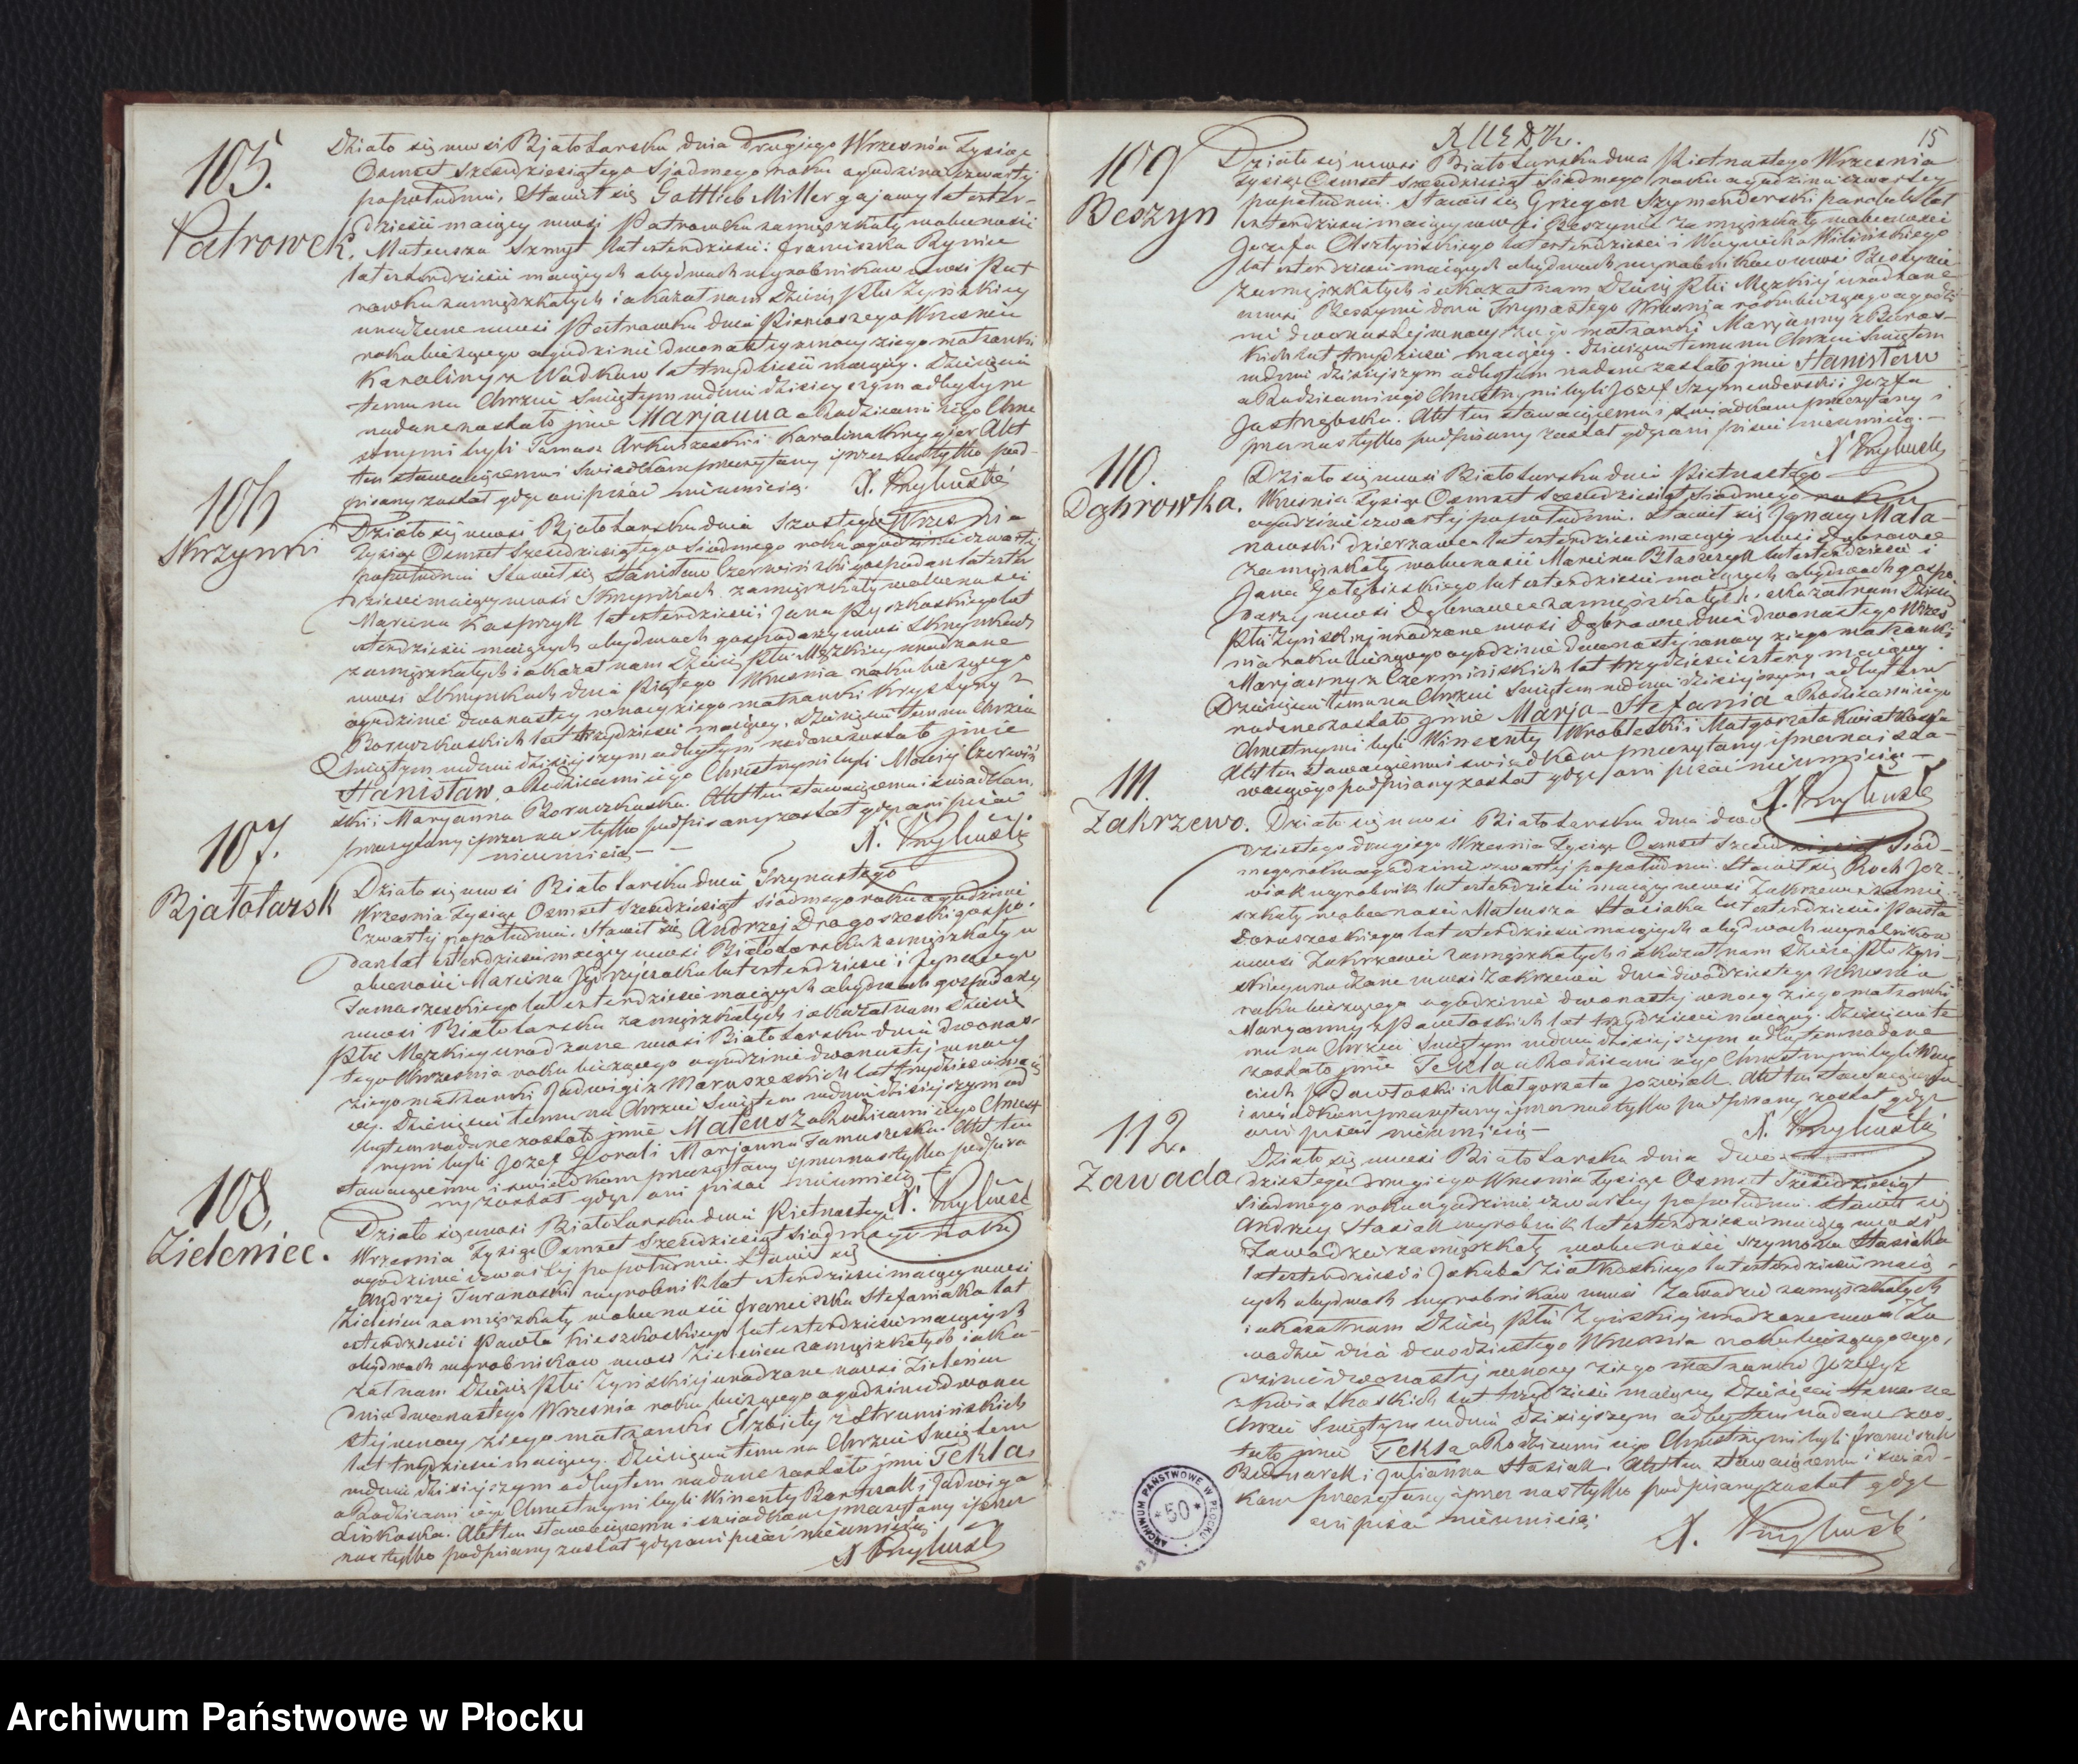 105.
Patrowek.
Działo się wwsi Bjałotarsku dnia drugiego Września Tysiąc
Osmset Szesdziesiątego Sjodmego roku ogodzinie czwarty
popołudniu, Stawił się Gottlieb Miller gajowy lat czter-
dziesci maiący wwsi Patrowku zamięszkały wobecnosci
Mateusza Szmyt lat czterdziesci i Franciszka Rynie
lat czterdziesci maiących obydwuch wyrobnikow wwsi Pat
rowku zamięszkałych i okazał nam Dziecię Płci Zyńskiey
urodzone wwsi Patrowku dnia Pierwszego Wrzesnia
roku bieżącego ogodzinie dwonasty wnocy ziego małżonki
Karoliny z Wudkow lat trzydziesci maiący. Dziecięciu
temu na Chrzcie Swiętym wdniu dzisieyszym odbytym
nadane zostało jmie Marjanna a Rodzicami iego Chrze
stnymi byli Tomasz Arkuszeski i Karolina Krygier Akt
ten stawaiącemu i Swiadkom przeczytany i przez nas tylko pod-
pisany został gdyż ani pisać nieumieią. X. Przyłuski
106
Skrzynki
Działo się wwsi Bjałotarsku dnia Szostego Wrzesnia
Tysiąc Osmset Szesdziesiątego Siodmego roku ogodzinie czwarty
popołudniu Stawił się Stanisław Czerwiński gospodarz lat czter
dziesci maiący wwsi Skrzynkach zamięszkały wobecnosci
Marcina Kasprzyk lat czterdziesci i Jana Pyszkoskiego lat
czterdziesci maiących obydwuch gospodarzy wwsi Skrzynkach
zamięszkałych i okazał nam Dziecię Płci Męzkiey urodzone
wwsi Skrzynkach dnia Piątego Wrzesnia roku bieżącego
ogodzinie dwonasty wnocy ziego małżonki Krystyny z
Boruczkoskich lat trzydziesci maiącey. Dziecięciu temu na Chrzcie
Swiętym wdniu dzisieyszym odbytym nadane zostało jmie
Stanisław, a Rodzicami iego Chrzestnymi byli Maciej Czerwiń
ski i Maryanna Boruczkoska. Akt ten stawaiącemu i swiadkom,
przeczytany i przez nas tylko podpisany został gdyż ani pisać
nieumieią — X. Przyłuski
107.
Bjałotarsk
Działo się wwsi Białotarsku dnia Trzynastego
Wrzesnia Tysiąc Osmset Szesdziesiąt Siodmego roku ogodzinie
Czwarty popołudniu. Stawił się Andrzej Dragoszeski gospo-
darz lat czterdziesci maiący wwsi Białotarsku zamięszkały w
obecnosci Marcina lat czterdziesci i Jgnacego
Tomaszeskiego lat czterdziesci maiących obydwuch gospodarzy
wwsi Białotarsku zamięszkałych i okazał nam Dziecię
Płci Męzkiey urodzone wwsi Białotarsku dnia dwonas-
tego Wrzesnia roku bieżącego ogodzinie dwonasty wnocy
ziego małżonki Jadwigi z Maruszeskich lat trzydziesci maią
cej. Dziecięciu temu na Chrzcie Swiętem wdniu dzisiejszym od
bytem nadane zostało jmie Mateusz a Rodzicami iego Chrzest
nymi byli Jozef Gorski Marjanna Tomaszeska. Akt ten
stawaiącemu i swiadkom przeczytany i przez nas tylko podpisa
ny został gdyż ani pisać nieumieią X. Przyłuski
108.
Zieleniec.
Działo się wwsi Białotarsku dnia Pietnastego
Wrzesnia Tysiąc Osmset Szesdziesiąt Siodmego roku
ogodzinie czwartej popołudniu. Stawił się
Andrzej Turanoski wyrobnik lat czterdziesci maiący wwsi
Zieleńcu zamięszkały wobecnosci Franciszka Stefaniaka lat
czterdziesci i Pawła Kieszkoskiego lat czterdziesci maiących
obydwuch wyrobnikow wwsi Zieleńcu zamięszkałych i oka-
zał nam Dziecię Płci Zyńskiej urodzone wwsi Zieleńcu
dnia dwonastego Wrzesnia roku bieżącego ogodzinie dwona
stej wnocy ziego małżonki Elzbiety z Strumińskich
lat trzydziesci maiący. Dziecięciu temu na Chrzcie Swiętem
wdniu dzisiejszym odbytem nadane zostało jmie Tekla,
a Rodzicami iego Chrzestnymi byli Winenty Bartczak i Jadwiga
Linkoska. Akt ten stawaiącemu i swiadkom przeczytany i przez
nas tylko podpisany został gdyż ani pisać nieumieią.
X Przyłuski
15
109
Beszyn
Działo się wwsi Białotarsku dnia Pietnastego Wrzesnia
Tysiąc Osmset Szesdziesiąt Siodmego roku ogodzinie czwartey
popołudniu. Stawił się Grzegorz Szymenderski parobek lat
czterdziesci maiący wwsi Beszynie zamięszkały wobecnosci
Jozefa Olsztyńskiego lat czterdziesci i Woyciecha Wilińskiego
lat czterdziesci maiących obydwuch wyrobnikow wwsi Beszynie
zamięszkałych i okazał nam Dziecię Płci Męzkiej urodzone
wwsi Beszynie dnia Trzynastego Wrzesnia roku bieżącego ogodzi
nie dwonastej wnocy ziego małżonki Marjanny z Boros-
kich lat trzydziesci maiącey. Dziecięciu temu na Chrzcie Swiętem
wdniu dzisiejszym odbytem nadane zostało jmie Stanisław
a Rodzicami iego Chrzestnymi byli Jozef Szymenderski i Jozefa
Jastrzębska. Akt ten stawaiącemu i swiadkom przeczytany i
przez nas tylko podpisany został gdyż ani pisać nieumieią. —
X Przyłuski
110.
Dąbrowka.
Działo się wwsi Białotarsku dnia Pietnastego
Wrzesnia Tysiąc Osmset Szesdziesiąt Siodmego roku
ogodzinie czwartej popołudniu. Stawił się Jgnacy Mala-
nowski dzierzawca lat czterdziesci maiący wwsi Dąbrowce
zamięszkały wobecnosci Marcina Błaszczyk lat czterdziesci i
Jana Gołębieskiego lat czterdziesci maiących obydwuch gospo-
darzy wwsi Dąbrowce zamięszkałych i okazał nam Dziecię
Płci Zyńskiej urodzone wwsi Dąbrowce dnia dwonastego Wrzes
nia roku bieżącego ogodzinie dwonastej wnocy ziego małżonki
Marjanny z Czermińskich lat trzydziesci cztery maiącey.
Dziecięciu temu na Chrzcie Swiętem wdniu dzisiejszym odbytem
nadane zostało jmie Marja-Stefania a Rodzicami iego
Chrzestnymi byli Winenty Wrobleski i Małgorzata Kwiatkoska
Akt ten stawaiącemu i swiadkom przeczytany i przez nas i sta-
waiącego podpisany został gdyż ani pisać nieumieią —
X. Przyłuski
111.
Zakrzewo.
Działo się wwsi Białotarsku dnia dwo
dziestego drugiego Wrzesnia Tysiąc Osmset Szesdziesiąt Siod-
mego roku ogodzinie czwartej popołudniu. Stawił się Roch Joz-
wiak wyrobnik lat czterdziesci maiący wwsi Zakrzewie zamię-
szkały wobecnosci Mateusza Stasiaka lat czterdziesci i Pawła
Doruszeskiego lat czterdziesci maiących obydwuch wyrobnikow
wwsi Zakrzewie zamięszkałych i okazał nam Dziecię Płci Zyń-
skiey urodzone wwsi Zakrzewie dnia dwodziestego Wrzesnia
roku bieżącego ogodzinie dwonastej wnocy ziego małżonki
Maryanny z Pawłoskich lat trzydziesci maiący. Dziecięciu te
mu na Chrzcie Swiętym wdniu dzisiejszym odbytem nadane
zostało jmie Tekla a Rodzicami iego Chrzestnymi byli Woyc
ciech Pawłoski i Małgorzata Jozwiak. Akt ten stawaiącemu
i swiadkom przeczytany i przez nas tylko podpisany został gdyż
ani pisać nieumieią — X. Przyłuski
112.
Zawada
Działo się wwsi Białotarsku dnia dwo-
dziestego drugiego Wrzesnia Tysiąc Osmset Szesdziesiąt
Siodmego roku ogodzinie czwartey popołudniu. Stawił się
Andrzey Stasiak wyrobnik lat czterdziesci maiący wwsi
Zawadzie zamięszkały wobecnosci Szymona Stasiaka
lat czterdziesci i Jakuba Ziatkoskiego lat czterdziesci maią-
cych obydwuch wyrobnikow wwsi Zawadzie zamięszkałych
i okazał nam Dziecię Płci Zyńskiej urodzone wwsi Za
wadzie dnia dwodziestego Wrzesnia roku bieżącego ogo-
dzinie dwonastej wnocy ziego małżonki Jozefy z
Kwiatkoskich lat trzydziesci maiący Dziecięciu temu na
Chrzcie Swiętym wdniu dzisiejszym odbytem nadane zos-
tało jmie Tekla a Rodzicami iego Chrzestnymi byli Franciszek
Bednarek i Julianna Stasiak. Akt ten stawaiącemu i swiad-
kom przeczytany i przez nas tylko podpisany został gdyż
ani pisać nieumieią.
X. Przyłuski
ARCHIWUM PAŃSTWOWE W PŁOCKU
* 50 *
Archiwum Państwowe w Płocku